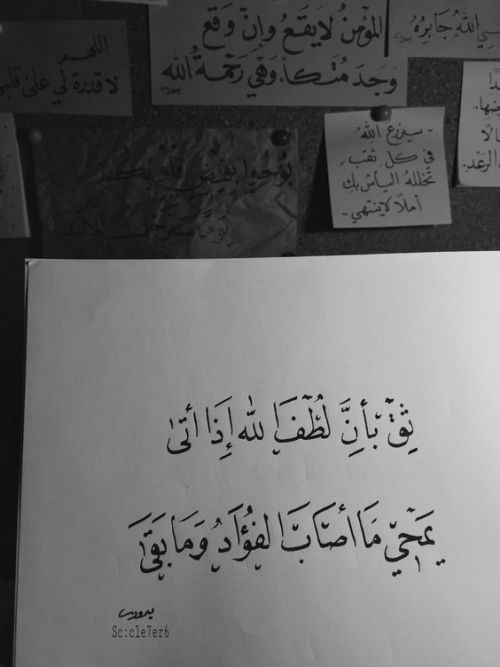 المؤمنُ لا يَقعُ وإنْ وَقع
وَجدَ مُتكأ، وَهْيَ رَحْمَةُ الله
الله جَابرُهُ
اللهم
لا قدرة لي على
- سيزرع اللهُ
في كل ثقبٍ
تخللهُ اليأسُ بكِ
أملًا لا ينتهي -
ثِقْ بأنَّ لُطْفَ الله إذَا أتىٰ
يَمْحِيْ مَا أصَابَ الفُؤَادُ وَمَا بَقىٰ
Sc:cle7er6